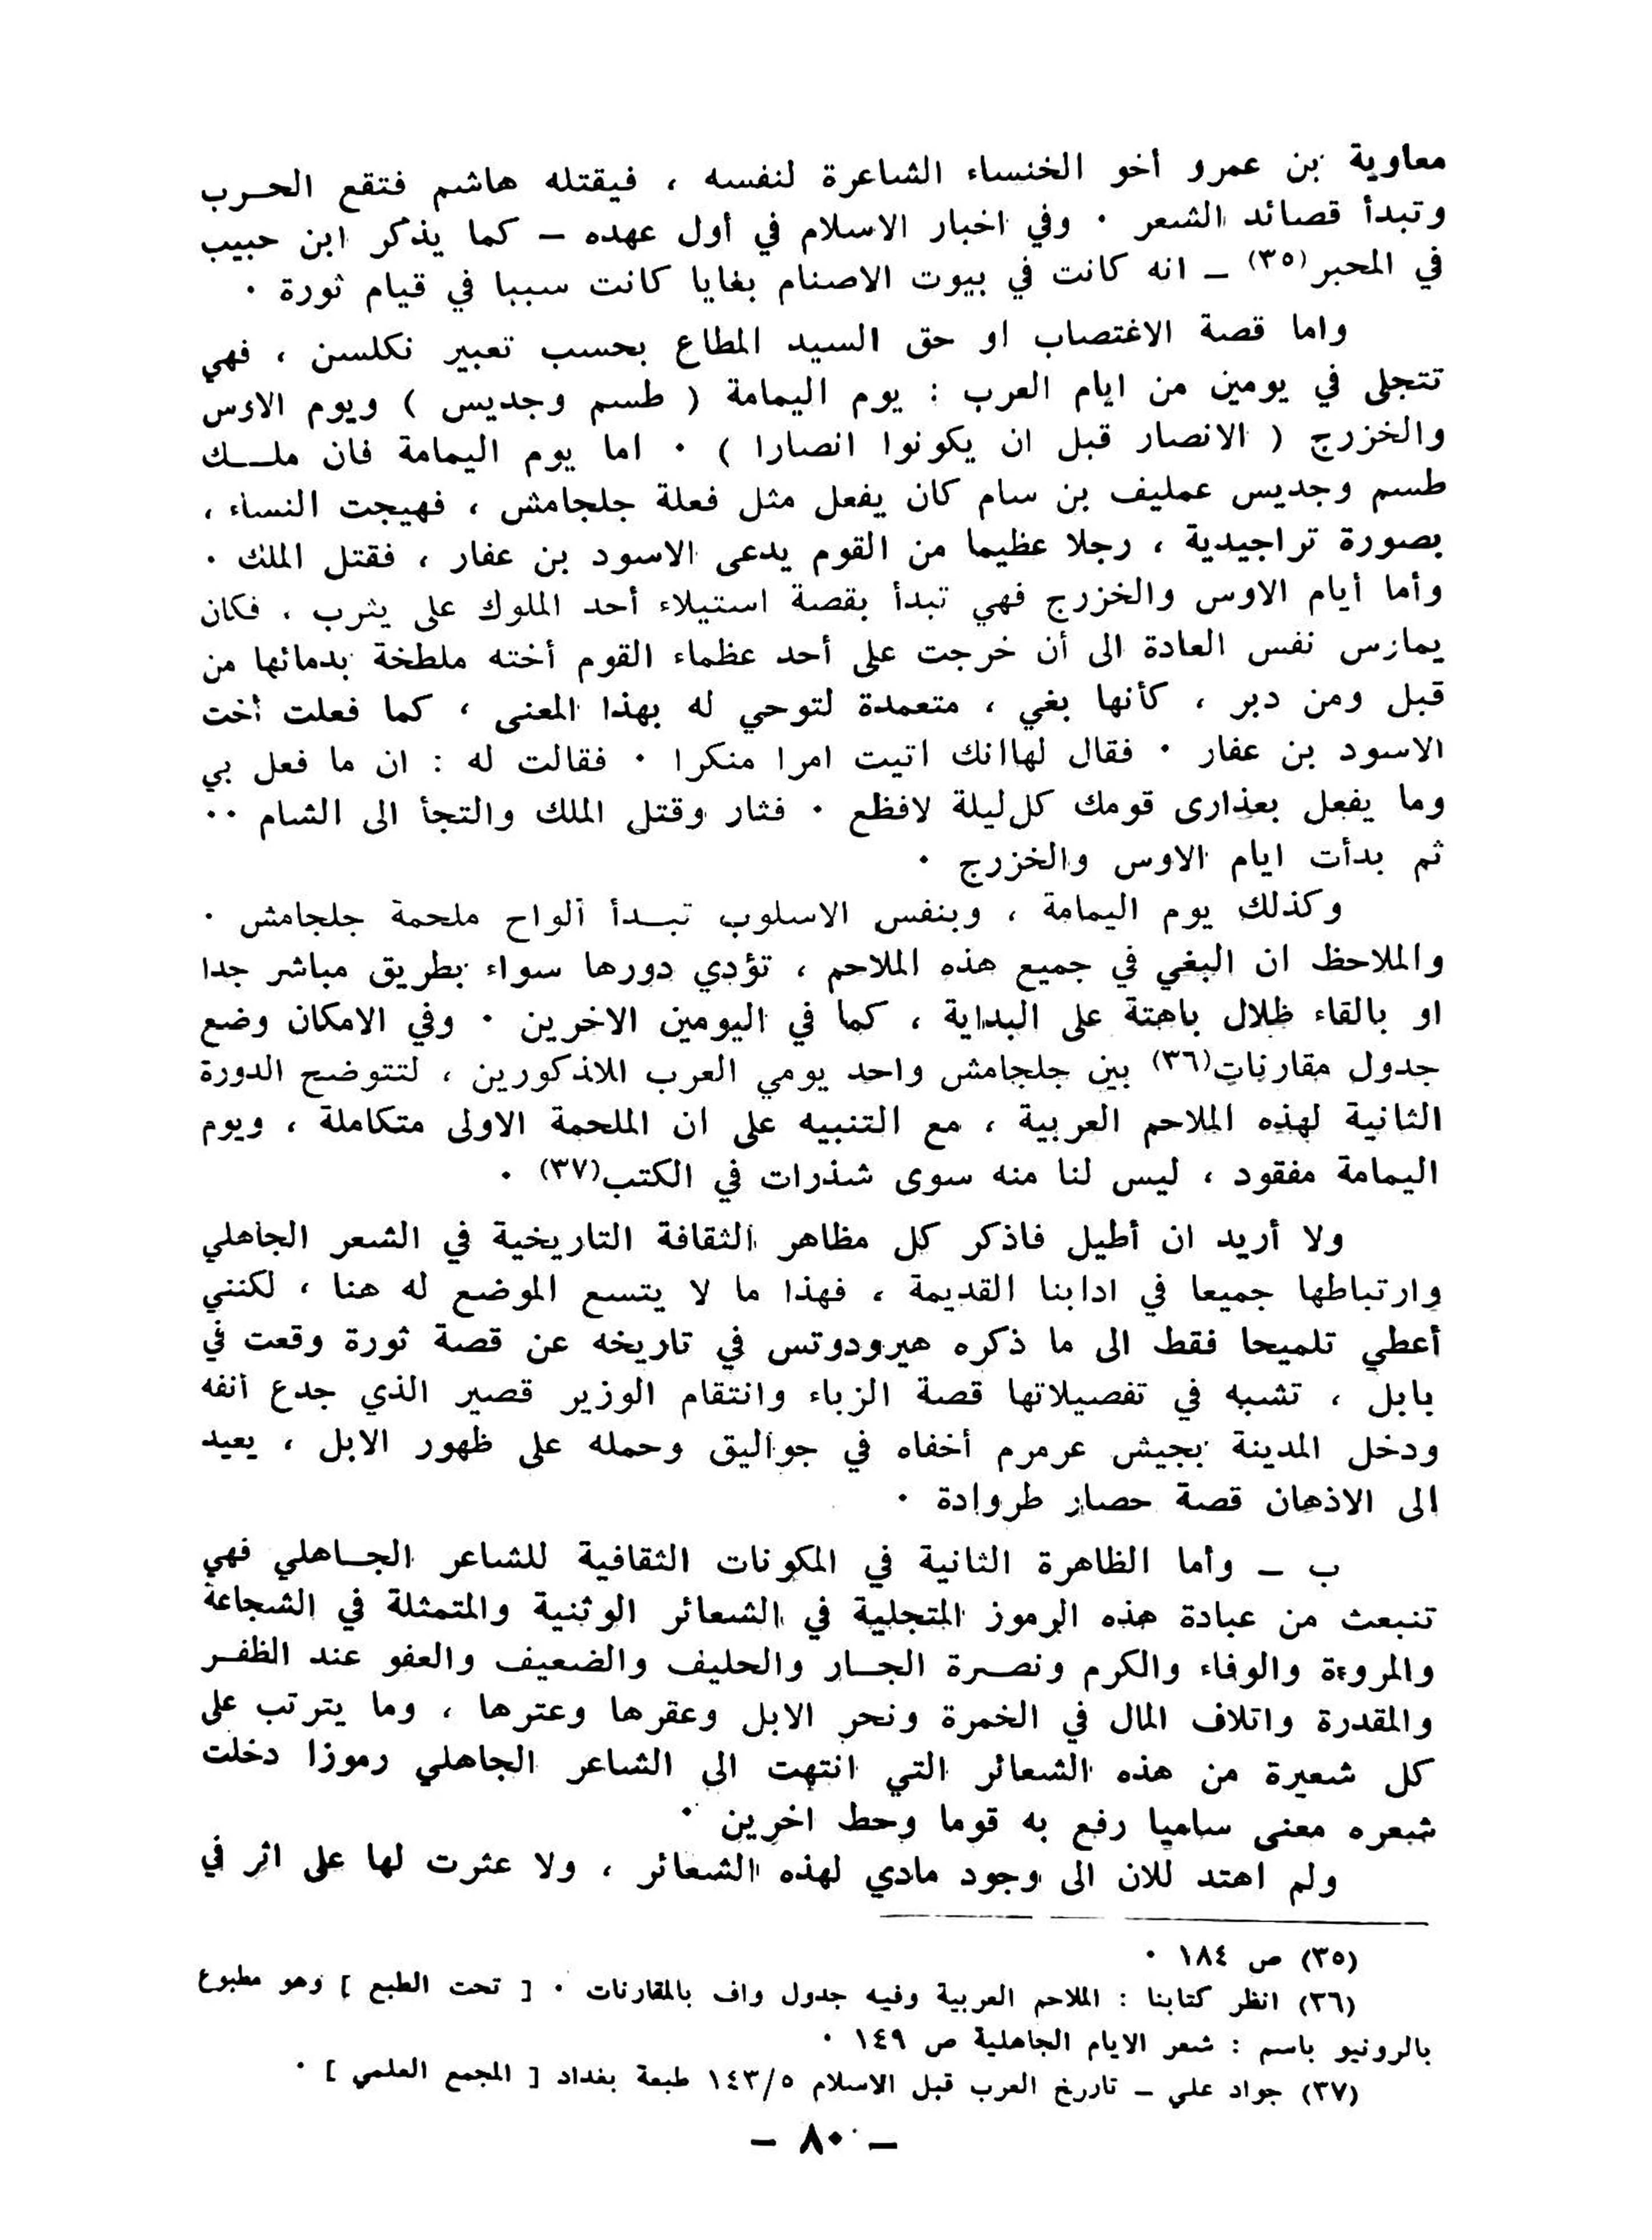 معاوية بن عمرو أخو الخنساء الشاعرة لنفسه ، فيقتله هاشم فتقع الحرب
وتبدأ قصائد الشعر ٠ وفي اخبار الاسلام في أول عهده – كما يذكر ابن حبيب
في المحبر(٣٥) – انه كانت في بيوت الاصنام بغايا كانت سببا في قيام ثورة ٠
واما قصة الاغتصاب او حق السيد المطاع بحسب تعبير نكلسن ، فهي
تتجلى في يومين من ايام العرب : يوم اليمامة ( طسم وجديس ) ويوم الاوس
والخزرج ( الانصار قبل ان يكونوا انصارا ) ٠ اما يوم اليمامة فان ملك
طسم وجديس عمليف بن سام كان يفعل مثل فعلة جلجامش ، فهيجت النساء ،
بصورة تراجيدية ، رجلا عظيما من القوم يدعى الاسود بن عفار ، فقتل الملك ٠
وأما أيام الاوس والخزرج فهي تبدأ بقصة استيلاء أحد الملوك على يثرب ، فكان
يمارس نفس العادة الى أن خرجت على أحد عظماء القوم أخته ملطخة بدمائها من
قبل ومن دبر ، كأنها بغي ، متعمدة لتوحي له بهذا المعنى ، كما فعلت أخت
الاسود بن عفار ٠ فقال لهاانك اتيت امرا منكرا ٠ فقالت له : ان ما فعل بي
وما يفعل بعذارى قومك كل ليلة لافظع ٠ فثار وقتل الملك والتجأ الى الشام ٠٠
ثم بدأت ايام الاوس والخزرج ٠
وكذلك يوم اليمامة ، وبنفس الاسلوب تبدأ ألواح ملحمة جلجامش ٠
والملاحظ ان البغي في جميع هذه الملاحم ، تؤدي دورها سواء بطريق مباشر جدا
او بالقاء ظلال باهتة على البداية ، كما في اليومين الاخرين ٠ وفي الامكان وضع
جدول مقارنات(٣٦) بين جلجامش واحد يومي العرب الملاذكورين ، لتتوضح الدورة
الثانية لهذه الملاحم العربية ، مع التنبيه على ان الملحمة الاولى متكاملة ، ويوم
اليمامة مفقود ، ليس لنا منه سوى شذرات في الكتب(٣٧) ٠
ولا أريد ان أطيل فاذكر كل مظاهر الثقافة التاريخية في الشعر الجاهلي
وارتباطها جميعا في ادابنا القديمة ، فهذا ما لا يتسع الموضع له هنا ، لكنني
أعطي تلميحا فقط الى ما ذكره هيرودوتس في تاريخه عن قصة ثورة وقعت في
بابل ، تشبه في تفصيلاتها قصة الزباء وانتقام الوزير قصير الذي جدع أنفه
ودخل المدينة بجيش عرمرم أخفاه في جواليق وحمله على ظهور الابل ، يعيد
الى الاذهان قصة حصار طروادة ٠
ب – وأما الظاهرة الثانية في المكونات الثقافية للشاعر الجاهلي فهي
تنبعث من عبادة هذه الرموز المتجلية في الشعائر الوثنية والمتمثلة في الشجاعة
والمروءة والوفاء والكرم ونصرة الجار والحليف والضعيف والعفو عند الظفر
والمقدرة واتلاف المال في الخمرة ونحر الابل وعقرها وعترها ، وما يترتب على
كل شعيرة من هذه الشعائر التي انتهت الى الشاعر الجاهلي رموزا دخلت
شعره معنى ساميا رفع به قوما وحط اخرين ٠
ولم اهتد للان الى وجود مادي لهذه الشعائر ، ولا عثرت لها على اثر في
(٣٥) ص ١٨٤ ٠
(٣٦) انظر كتابنا : الملاحم العربية وفيه جدول واف بالمقارنات ٠ [ تحت الطبع ] وهو مطبوع
بالرونيو باسم : شعر الايام الجاهلية ص ١٤٩ ٠
(٣٧) جواد علي – تاررخ العرب قبل الاسلام ١٤٣/٥ طبعة بغداد [ المجمع العلمي ] ٠
– ٨٠ –